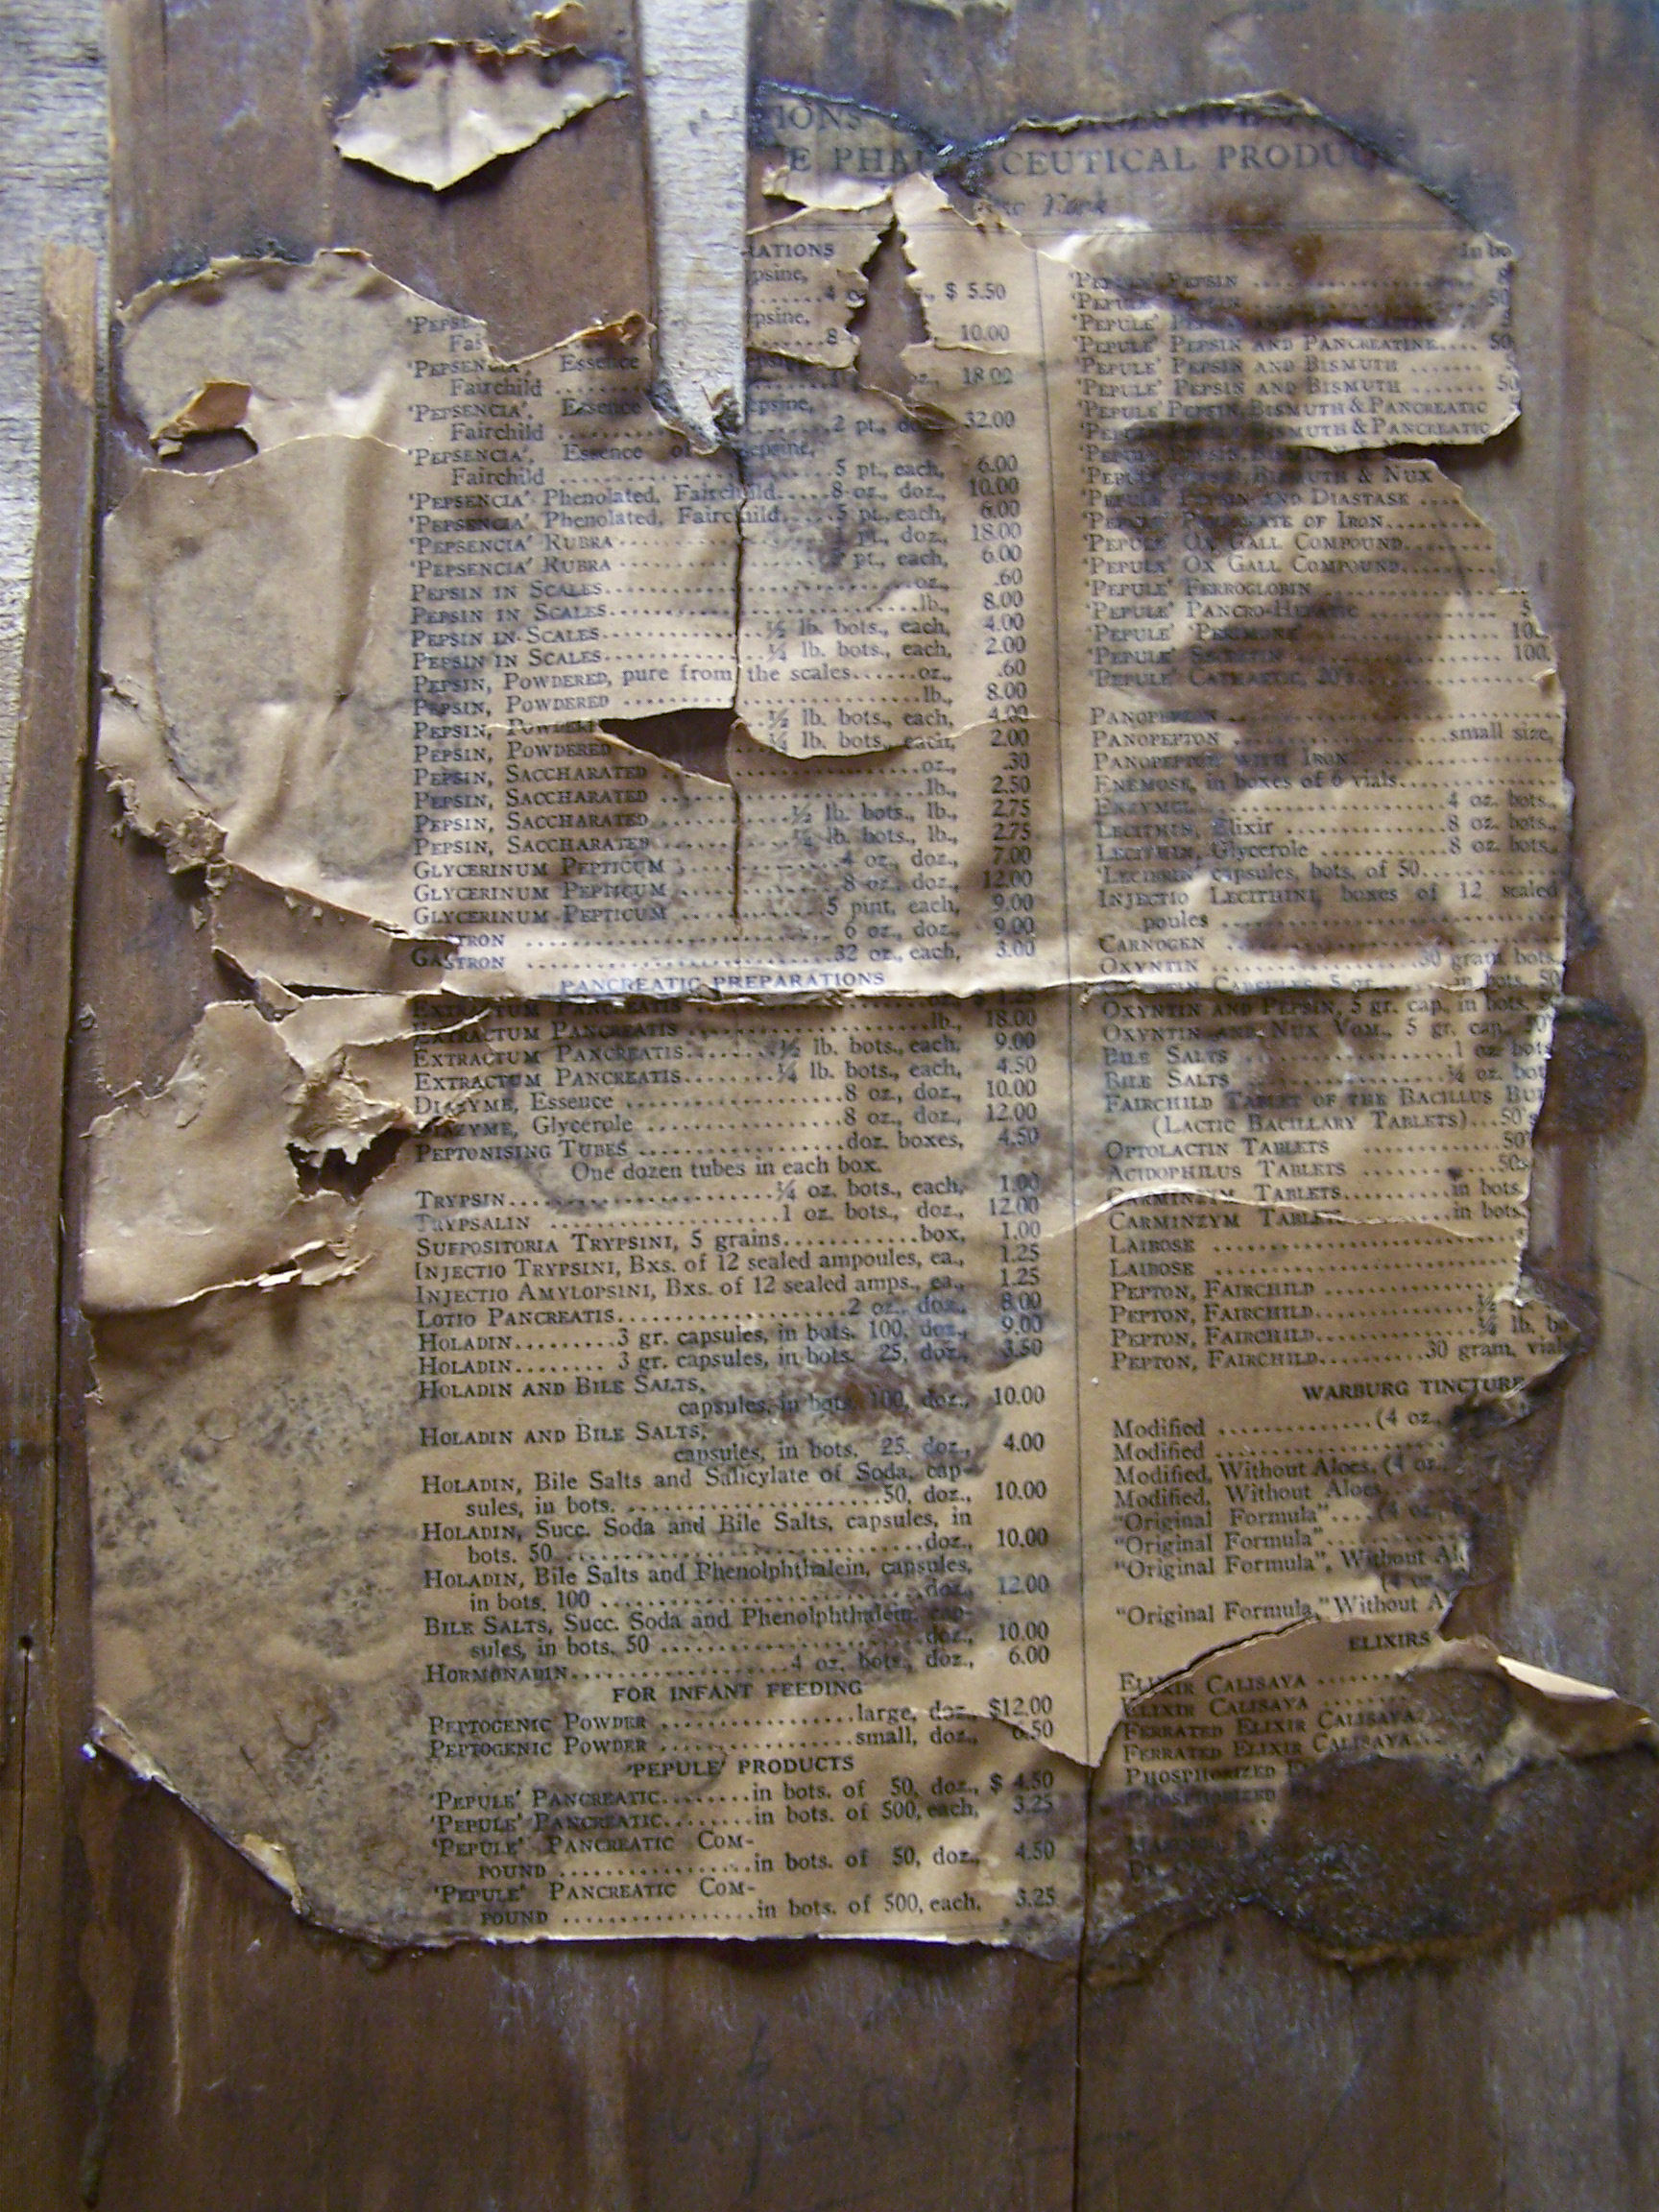 CEUTICAL PRODUC
York
RATIONS
psine,
$ 5.50
psine,
8 10.00
'PEPSENCIA', Essence
Fairchild ........ 18.00
'PEPSENCIA', Essence epsine,
Fairchild ........ 2 pt., doz., 32.00
'PEPSENCIA', Essence of epsine,
Fairchild ........ 5 pt., each, 6.00
'PEPSENCIA' Phenolated, Fairchild.....8 oz., doz., 10.00
'PEPSENCIA' Phenolated, Fairchild.....5 pt., each, 6.00
'PEPSENCIA' RUBRA ........ pt., doz., 18.00
'PEPSENCIA' RUBRA ........ pt., each, 6.00
PEPSIN IN SCALES........oz., .60
PEPSIN IN SCALES........lb., 8.00
PEPSIN IN SCALES........½ lb. bots., each, 4.00
PEPSIN IN SCALES........¼ lb. bots., each, 2.00
PEPSIN, POWDERED, pure from the scales......oz., .60
PEPSIN, POWDERED ........lb., 8.00
PEPSIN, POWDERE ........½ lb. bots., each, 4.00
PEPSIN, POWDERED ........¼ lb. bots., each, 2.00
PEPSIN, SACCHARATED ........oz., .30
PEPSIN, SACCHARATED ........lb., 2.50
PEPSIN, SACCHARATED ........½ lb. bots., lb., 2.75
PEPSIN, SACCHARATED ........ lb. bots., lb., 2.75
GLYCERINUM PEPTICUM ........4 oz., doz., 7.00
GLYCERINUM PEPTICUM ........8 oz., doz., 12.00
GLYCERINUM PEPTICUM ........5 pint, each, 9.00
GASTRON ........6 oz., doz., 9.00
GASTRON ........32 oz., each, 3.00
PANCREATIC PREPARATIONS
EXTRACTUM PANCREATIS ........oz., $ 1.25
EXTRACTUM PANCREATIS ........lb., 18.00
EXTRACTUM PANCREATIS........½ lb. bots., each, 9.00
EXTRACTUM PANCREATIS........¼ lb. bots., each, 4.50
DIAZYME, Essence ........8 oz., doz., 10.00
DIAZYME, Glycerole ........8 oz., doz., 12.00
PEPTONISING TUBES ........doz. boxes, 4.50
One dozen tubes in each box.
TRYPSIN........¼ oz. bots., each, 1.00
TRYPSALIN ........1 oz. bots., doz., 12.00
SUPPOSITORIA TRYPSINI, 5 grains........box, 1.00
INJECTIO TRYPSINI, Bxs. of 12 sealed ampoules, ea., 1.25
INJECTIO AMYLOPSINI, Bxs. of 12 sealed amps., ea., 1.25
LOTIO PANCREATIS........2 oz., doz., 8.00
HOLADIN........3 gr. capsules, in bots. 100, doz., 9.00
HOLADIN........3 gr. capsules, in bots. 25, doz., 3.50
HOLADIN AND BILE SALTS,
capsules, in bots. 100, doz., 10.00
HOLADIN AND BILE SALTS,
capsules, in bots. 25, doz., 4.00
HOLADIN, Bile Salts and Salicylate of Soda, cap-
sules, in bots. ........50, doz., 10.00
HOLADIN, Succ. Soda and Bile Salts, capsules, in
bots. 50........doz., 10.00
HOLADIN, Bile Salts and Phenolphthalein, capsules,
in bots. 100 ........doz., 12.00
BILE SALTS, Succ. Soda and Phenolphthalein, cap-
sules, in bots. 50 ........doz., 10.00
HORMONADIN........4 oz. bots., doz., 6.00
FOR INFANT FEEDING
PEPTOGENIC POWDER ........large, doz., $12.00
PEPTOGENIC POWDER ........small, doz., 6.50
'PEPULE' PRODUCTS
'PEPULE' PANCREATIC........in bots. of 50, doz., $ 4.50
'PEPULE' PANCREATIC........in bots. of 500, each, 3.25
'PEPULE' PANCREATIC COM-
POUND ........in bots. of 50, doz., 4.50
'PEPULE' PANCREATIC COM-
POUND ........in bots. of 500, each, 3.25
In bo
'PEPULE' PEPSIN ........
'PEPULE' ........ 50
'PEPULE' PEPSIN AND PANCREATINE....
'PEPULE' PEPSIN AND PANCREATINE.... 50
'PEPULE' PEPSIN AND BISMUTH .......
'PEPULE' PEPSIN AND BISMUTH ....... 50
'PEPULE' PEPSIN, BISMUTH & PANCREATIC
'PEPULE' BISMUTH & PANCREATIC
'PEPULE' PEPSIN, BISMUTH &
'PEPULE' PEPSIN, BISMUTH & NUX
'PEPULE' PEPSIN AND DIASTASE ....
'PEPULE' OF IRON........
'PEPULE' OX GALL COMPOUND........
'PEPULE' OX GALL COMPOUND........
'PEPULE' FERROGLOBIN ........
'PEPULE' PANCRO-HEPATIC ........
'PEPULE' ........ 10
'PEPULE' SECRETIN ........ 100,
'PEPULE' CATHARTIC, ........
PANOPEPTON ........
PANOPEPTON ........small size,
PANOPEPTON WITH IRON........
ENEMOSE, in boxes of 6 vials........
ENZYMOL ........4 oz. bots.,
LECITHIN, Elixir ........8 oz. bots.,
LECITHIN, Glycerole ........8 oz. bots.,
capsules, bots. of 50........
INJECTIO LECITHINI, boxes of 12 sealed
poules ........
CARNOGEN ........
OXYNTIN ........30 gram bots.
OXYNTIN CAPSULES, 5 gr......in bots. 50
OXYNTIN AND PEPSIN, 5 gr. cap. in bots. 50
OXYNTIN AND NUX VOM., 5 gr. cap. 50
BILE SALTS ........1 oz. bots
BILE SALTS ........ oz. bot
FAIRCHILD TABLET OF THE BACILLUS BUL
(LACTIC BACILLARY TABLETS)...50's
OPTOLACTIN TABLETS ........50
ACIDOPHILUS TABLETS ........50s
CARMINZYM TABLETS........in bots.
CARMINZYM TABLET........in bots.
LAIBOSE ........
LAIBOSE ........
PEPTON, FAIRCHILD ........
PEPTON, FAIRCHILD........½
PEPTON, FAIRCHILD........ lb. b
PEPTON, FAIRCHILD........30 gram, vial
WARBURG TINCTURE
Modified ........(4 oz.,
Modified ........
Modified, Without Aloes, (4 oz.,
Modified, Without Aloes,
"Original Formula"....(4 oz.,
"Original Formula" ........
"Original Formula", Without Al
"Original Formula," Without A
ELIXIRS
ELIXIR CALISAYA ........
ELIXIR CALISAYA ........
FERRATED ELIXIR CALISAYA..
FERRATED ELIXIR CALISAYA..
PHOSPHORIZED
PHOSPHORIZED